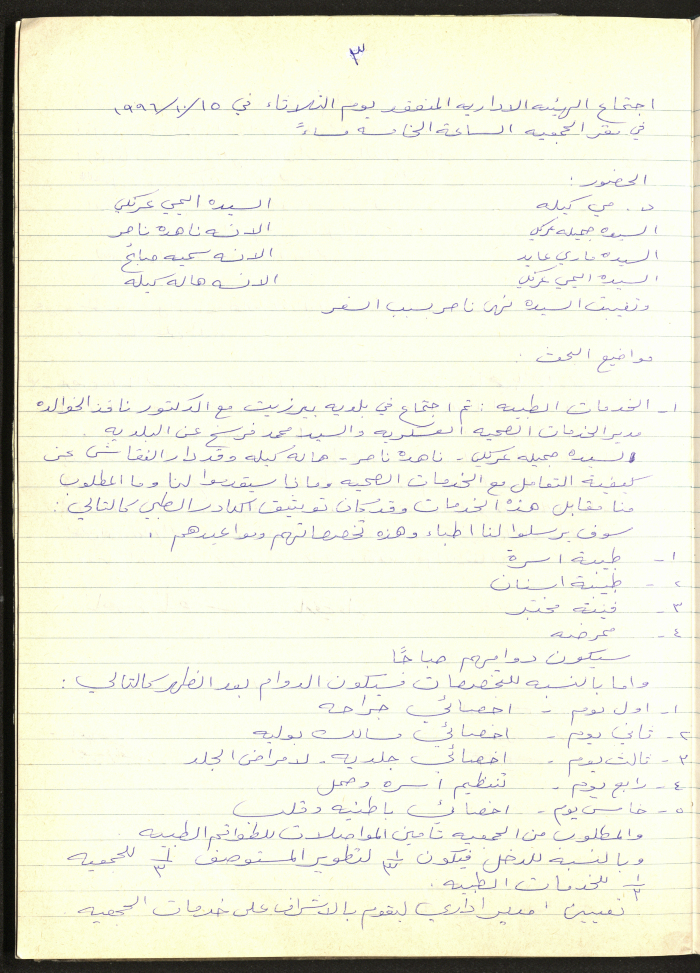 ٣
اجتماع الهيئه الاداريه المنعقد يوم الثلاثاء في ١٩٩٦/١٠/١٥
في مقر الجمعيه الساعة الخامسه مساءً
الحضور :
د. مي كيله السيده اليمي عرنكي
السيده جميله عرنكي الانسه ناهده ناصر
السيده ماري عايد الانسه سميه صايغ
السيده اليمي عرنكي الانسه هاله كيله
وتغيبت السيده نهى ناصر بسبب السفر
مواضيع البحث :
١- الخدمات الطبيه : تم اجتماع في بلديه بيرزيت مع الدكتور نافذ الخوالده
مدير الخدمات الصحيه العسكريه والسيد محمد فرسخ عن البلديه .
السيده جميله عرنكي - ناهده ناصر - هاله كيله وقد دار النقاش عن
كيفية التعامل مع الخدمات الصحيه وماذا سيقدموا لنا وما المطلوب
منا مقابل هذه الخدمات وقد كان توثيق الكادر الطبي كالتالي :
سوف يرسلوا لنا اطباء وهذه تخصصاتهم ومواعيدهم :
١- طبيبة اسرة
٢- طبيبة اسنان
٣- فنية مختبر
٤- ممرضه
سيكون دوامهم صباحًا
واما بالنسبه للتخصصات فسيكون الدوام بعد الظهر كالتالي :
١- اول يوم - اخصائي جراحه
٢- ثاني يوم - اخصائي مسالك بوليه
٣- ثالث يوم - اخصائي جلديه - لامراض الجلد
٤- رابع يوم - تنظيم اسرة وحمل
٥- خامس يوم - اخصائي باطنيه وقلب
والمطلوب من الجمعيه تأمين المواصلات للطواقم الطبيه
وبالنسبه للدخل فيكون ١/٣ لتطوير المستوصف ١/٣ للجمعيه
١/٣ للخدمات الطبيه .
تعيين مدير اداري ليقوم بالاشراف على خدمات الجمعيه